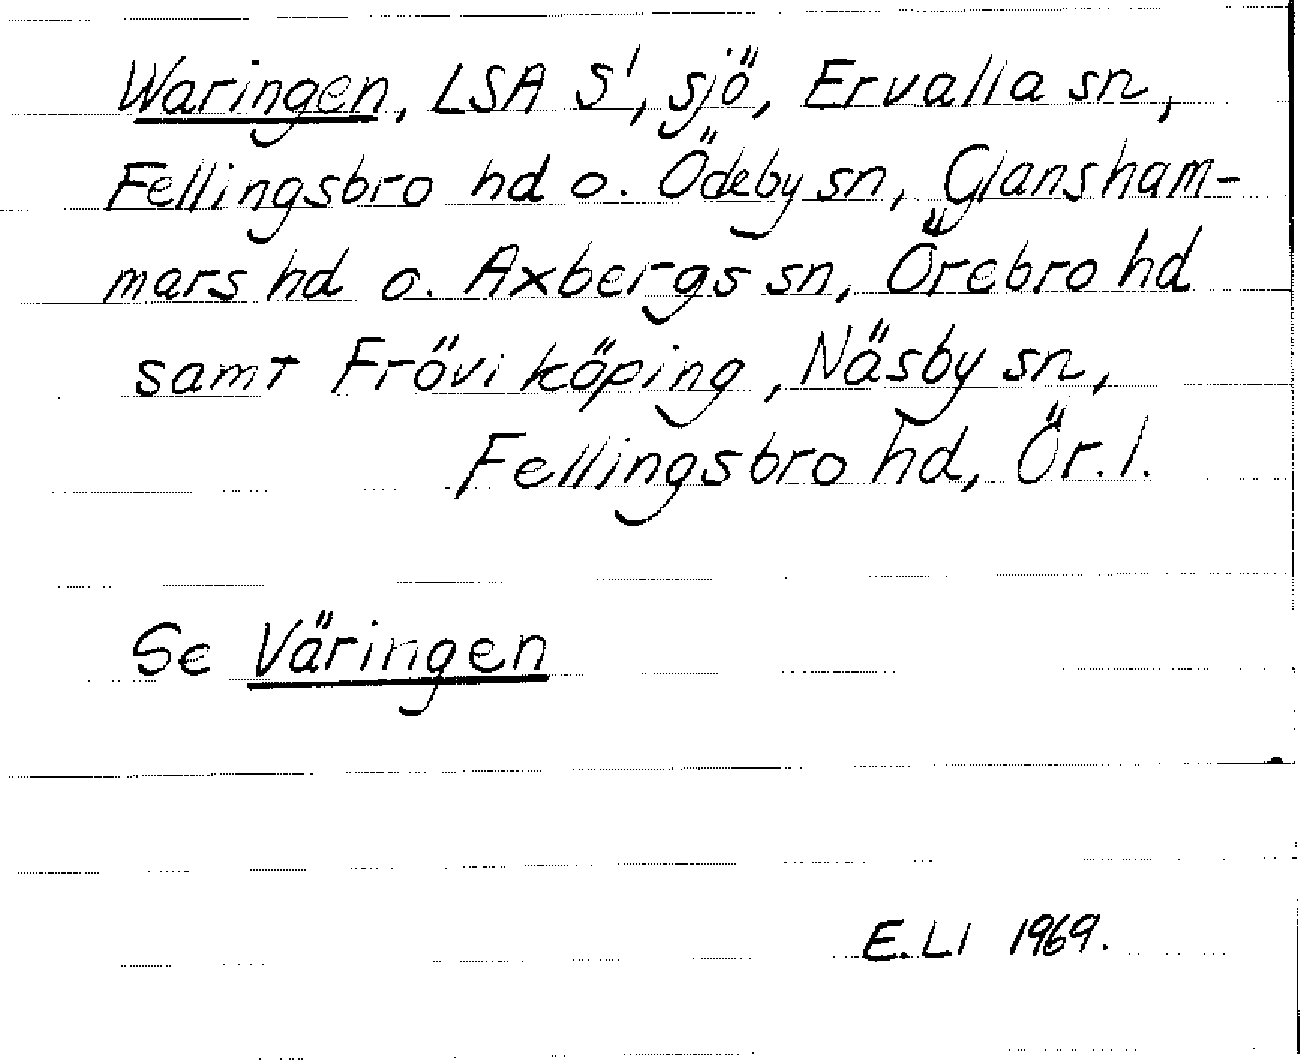 Waringen, LSA S¹, sjö, Ervalla sn,
Fellingsbro hd o. Ödeby sn, Glansham-
mars hd o. Axbergs sn, Örebro hd
samt Frövi köping, Näsby sn,
Fellingsbro hd, Ör. l.
Se Väringen
E.LI 1969.